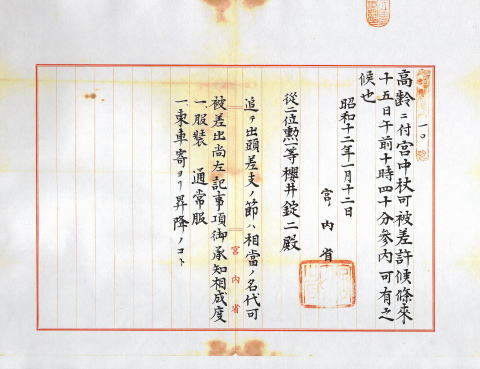 一〇
高齢ニ付宮中杖可被差許候條來
十五日午前十時四十分參内可有之
候也
昭和十二年一月十二日
宮内省
從二位勲一等櫻井錠二殿
追テ出頭差支ノ節ハ相當ノ名代可
被差出尚左記事項御承知相成度
一服装 通常服
一東車寄ヨリ昇降ノコト
宮内省